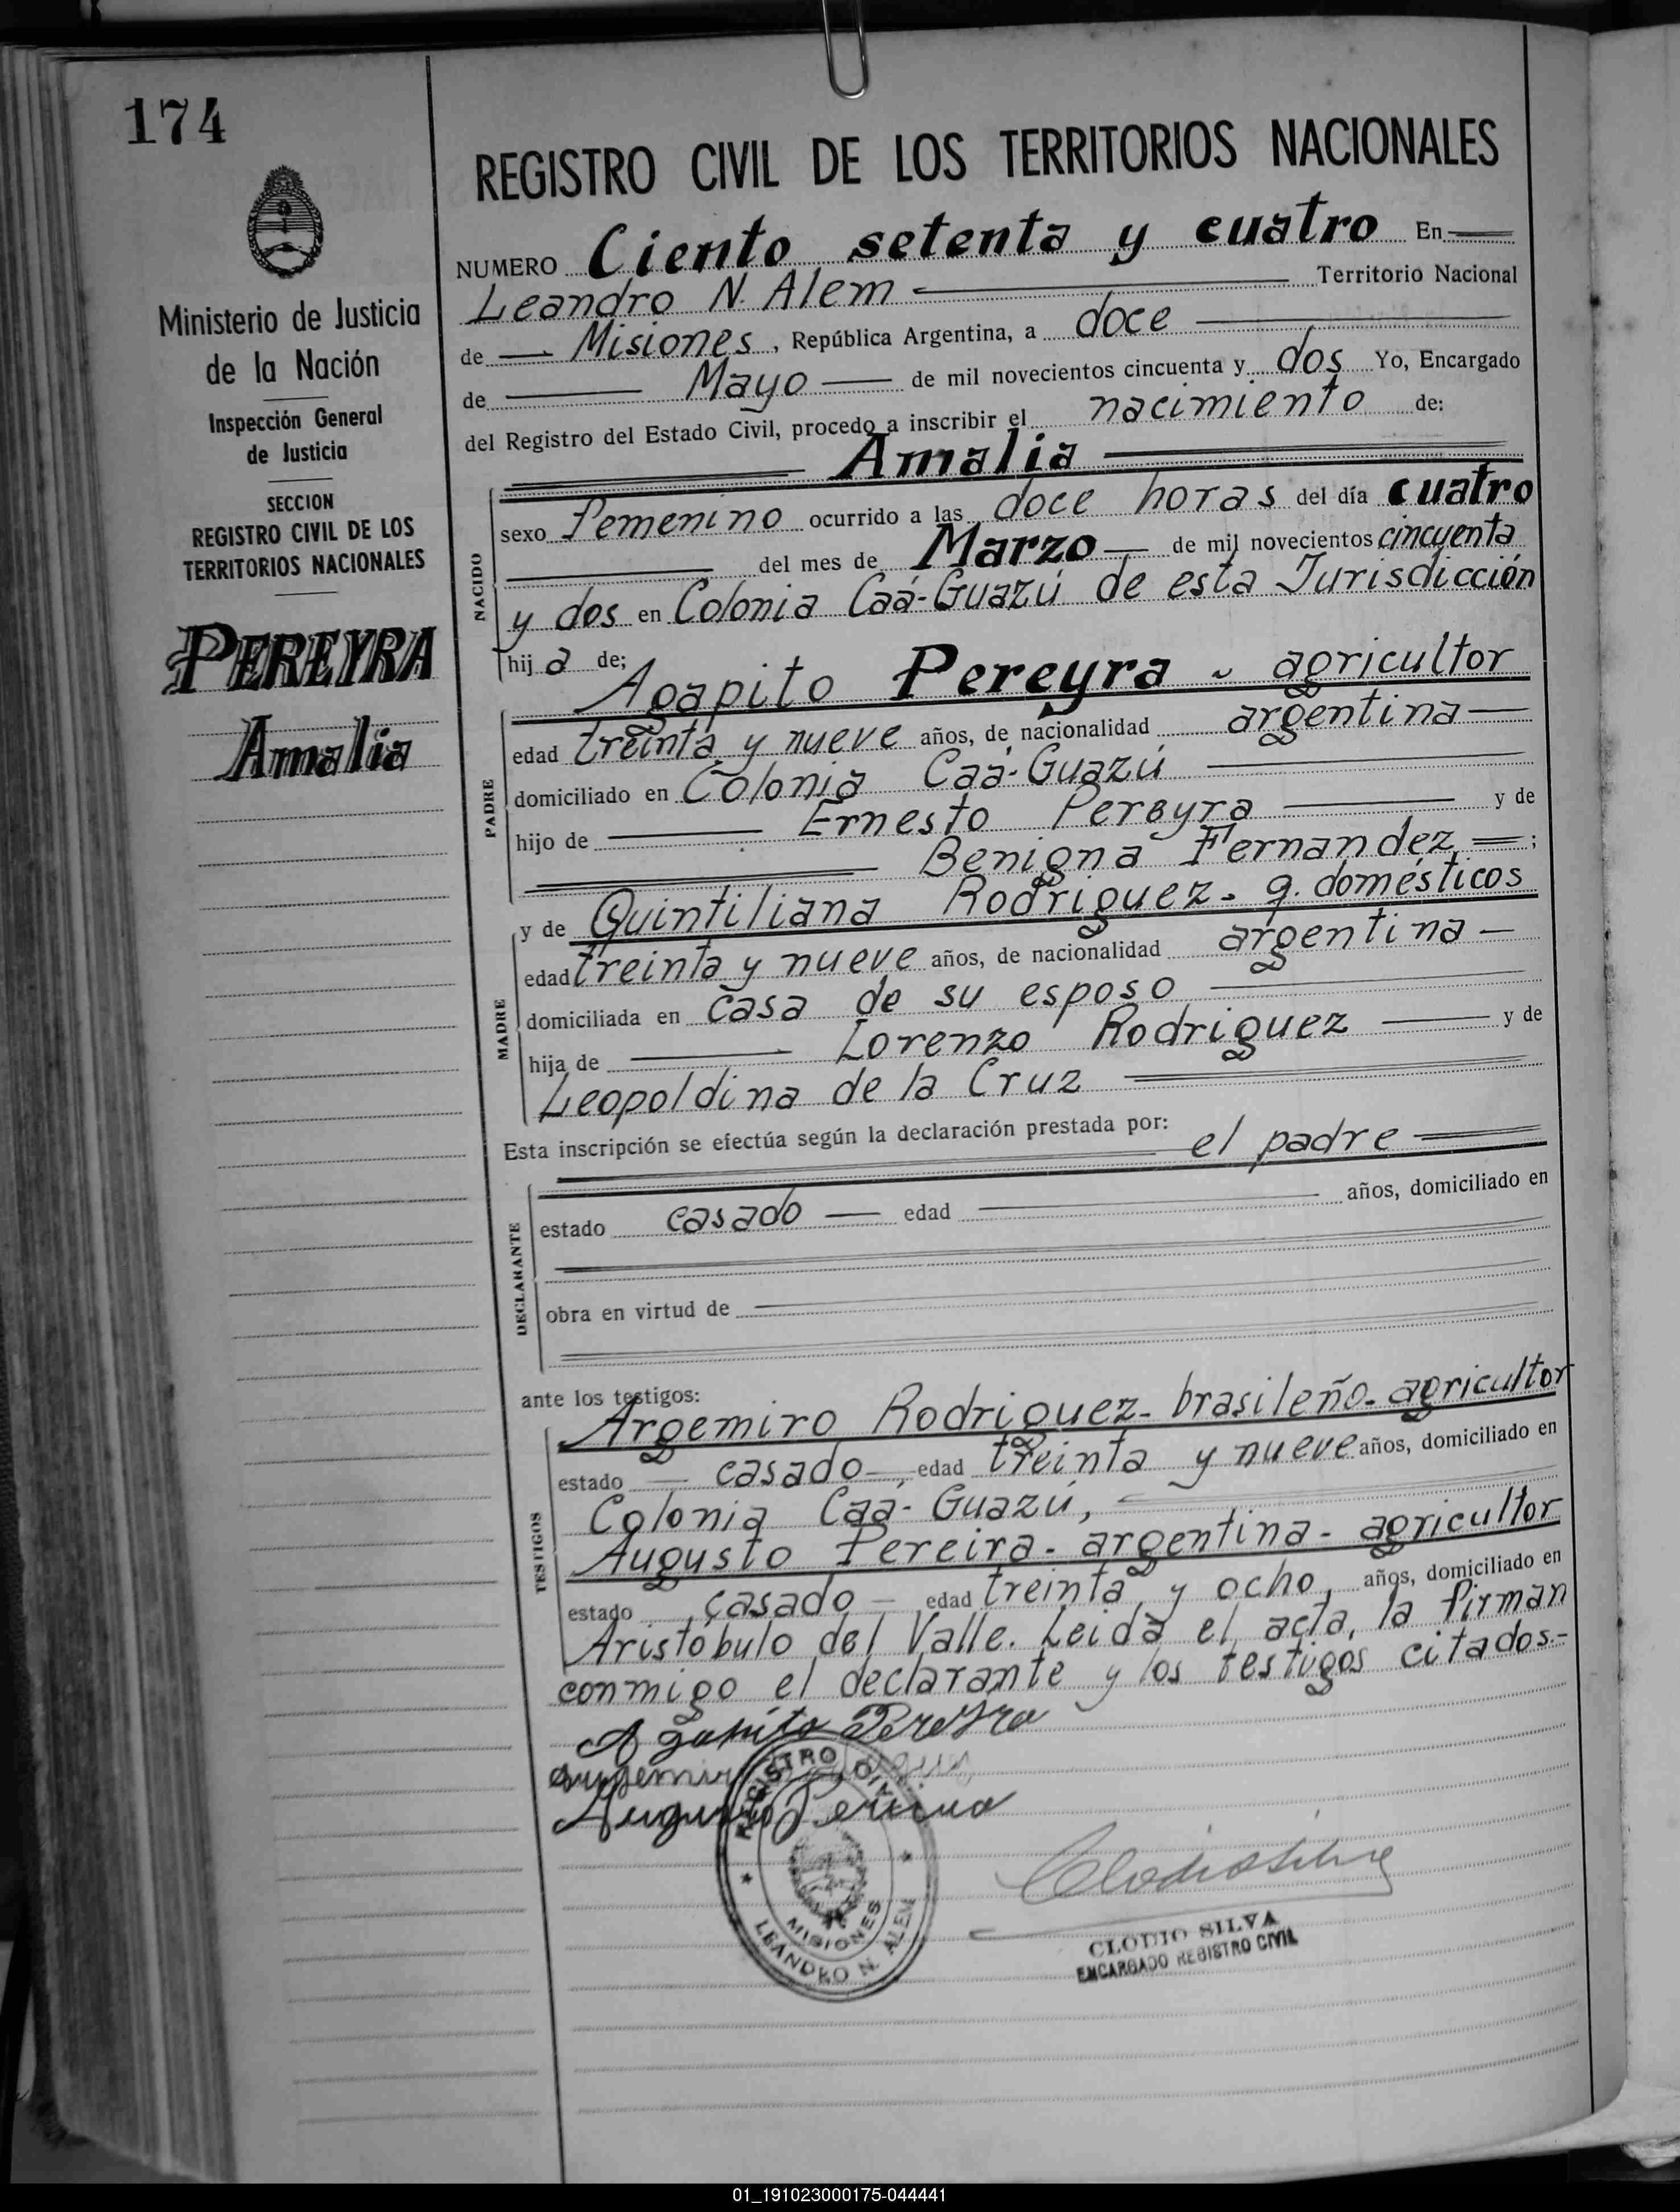 174
Ministerio de Justicia
de la Nación
Inspección General
de Justicia
SECCION
REGISTRO CIVIL DE LOS
TERRITORIOS NACIONALES
PEREYRA
Amalia
REGISTRO CIVIL DE LOS TERRITORIOS NACIONALES
NUMERO Ciento setenta y cuatro En
Leandro N. Alem Territorio Nacional
de Misiones, República Argentina, a doce
de Mayo de mil novecientos cincuenta y dos Yo, Encargado
del Registro del Estado Civil, procedo a inscribir el nacimiento de:
Amalia
NACIDO
sexo femenino ocurrido a las doce horas del día cuatro
del mes de Marzo de mil novecientos cincuenta
y dos en Colonia Caá-Guazú de esta Jurisdicción
hija de;
PADRE
Agapito Pereyra - agricultor
edad treinta y nueve años, de nacionalidad argentina
domiciliado en Colonia Caá-Guazú
hijo de Ernesto Pereyra y de
Benigna Fernandez ;
MADRE
y de Quintiliana Rodriguez - q. domésticos
edad treinta y nueve años, de nacionalidad argentina
domiciliada en casa de su esposo
hija de Lorenzo Rodriguez y de
Leopoldina de la Cruz
Esta inscripción se efectúa según la declaración prestada por: el padre
DECLARANTE
estado casado edad años, domiciliado en
obra en virtud de
ante los testigos:
TESTIGOS
Argemiro Rodriguez - brasileño - agricultor
estado casado, edad treinta y nueve años, domiciliado en
Colonia Caá-Guazú,
Augusto Pereira - argentina - agricultor
estado casado edad treinta y ocho, años, domiciliado en
Aristóbulo del Valle. Leida el acta, la firman
conmigo el declarante y los testigos citados-
Agapito Pereyra
Augusto Pereira
REGISTRO CIVIL
MISIONES
LEANDRO N. ALEM
Clodio Silva
CLODIO SILVA
ENCARGADO REGISTRO CIVIL
01_191023000175-044441